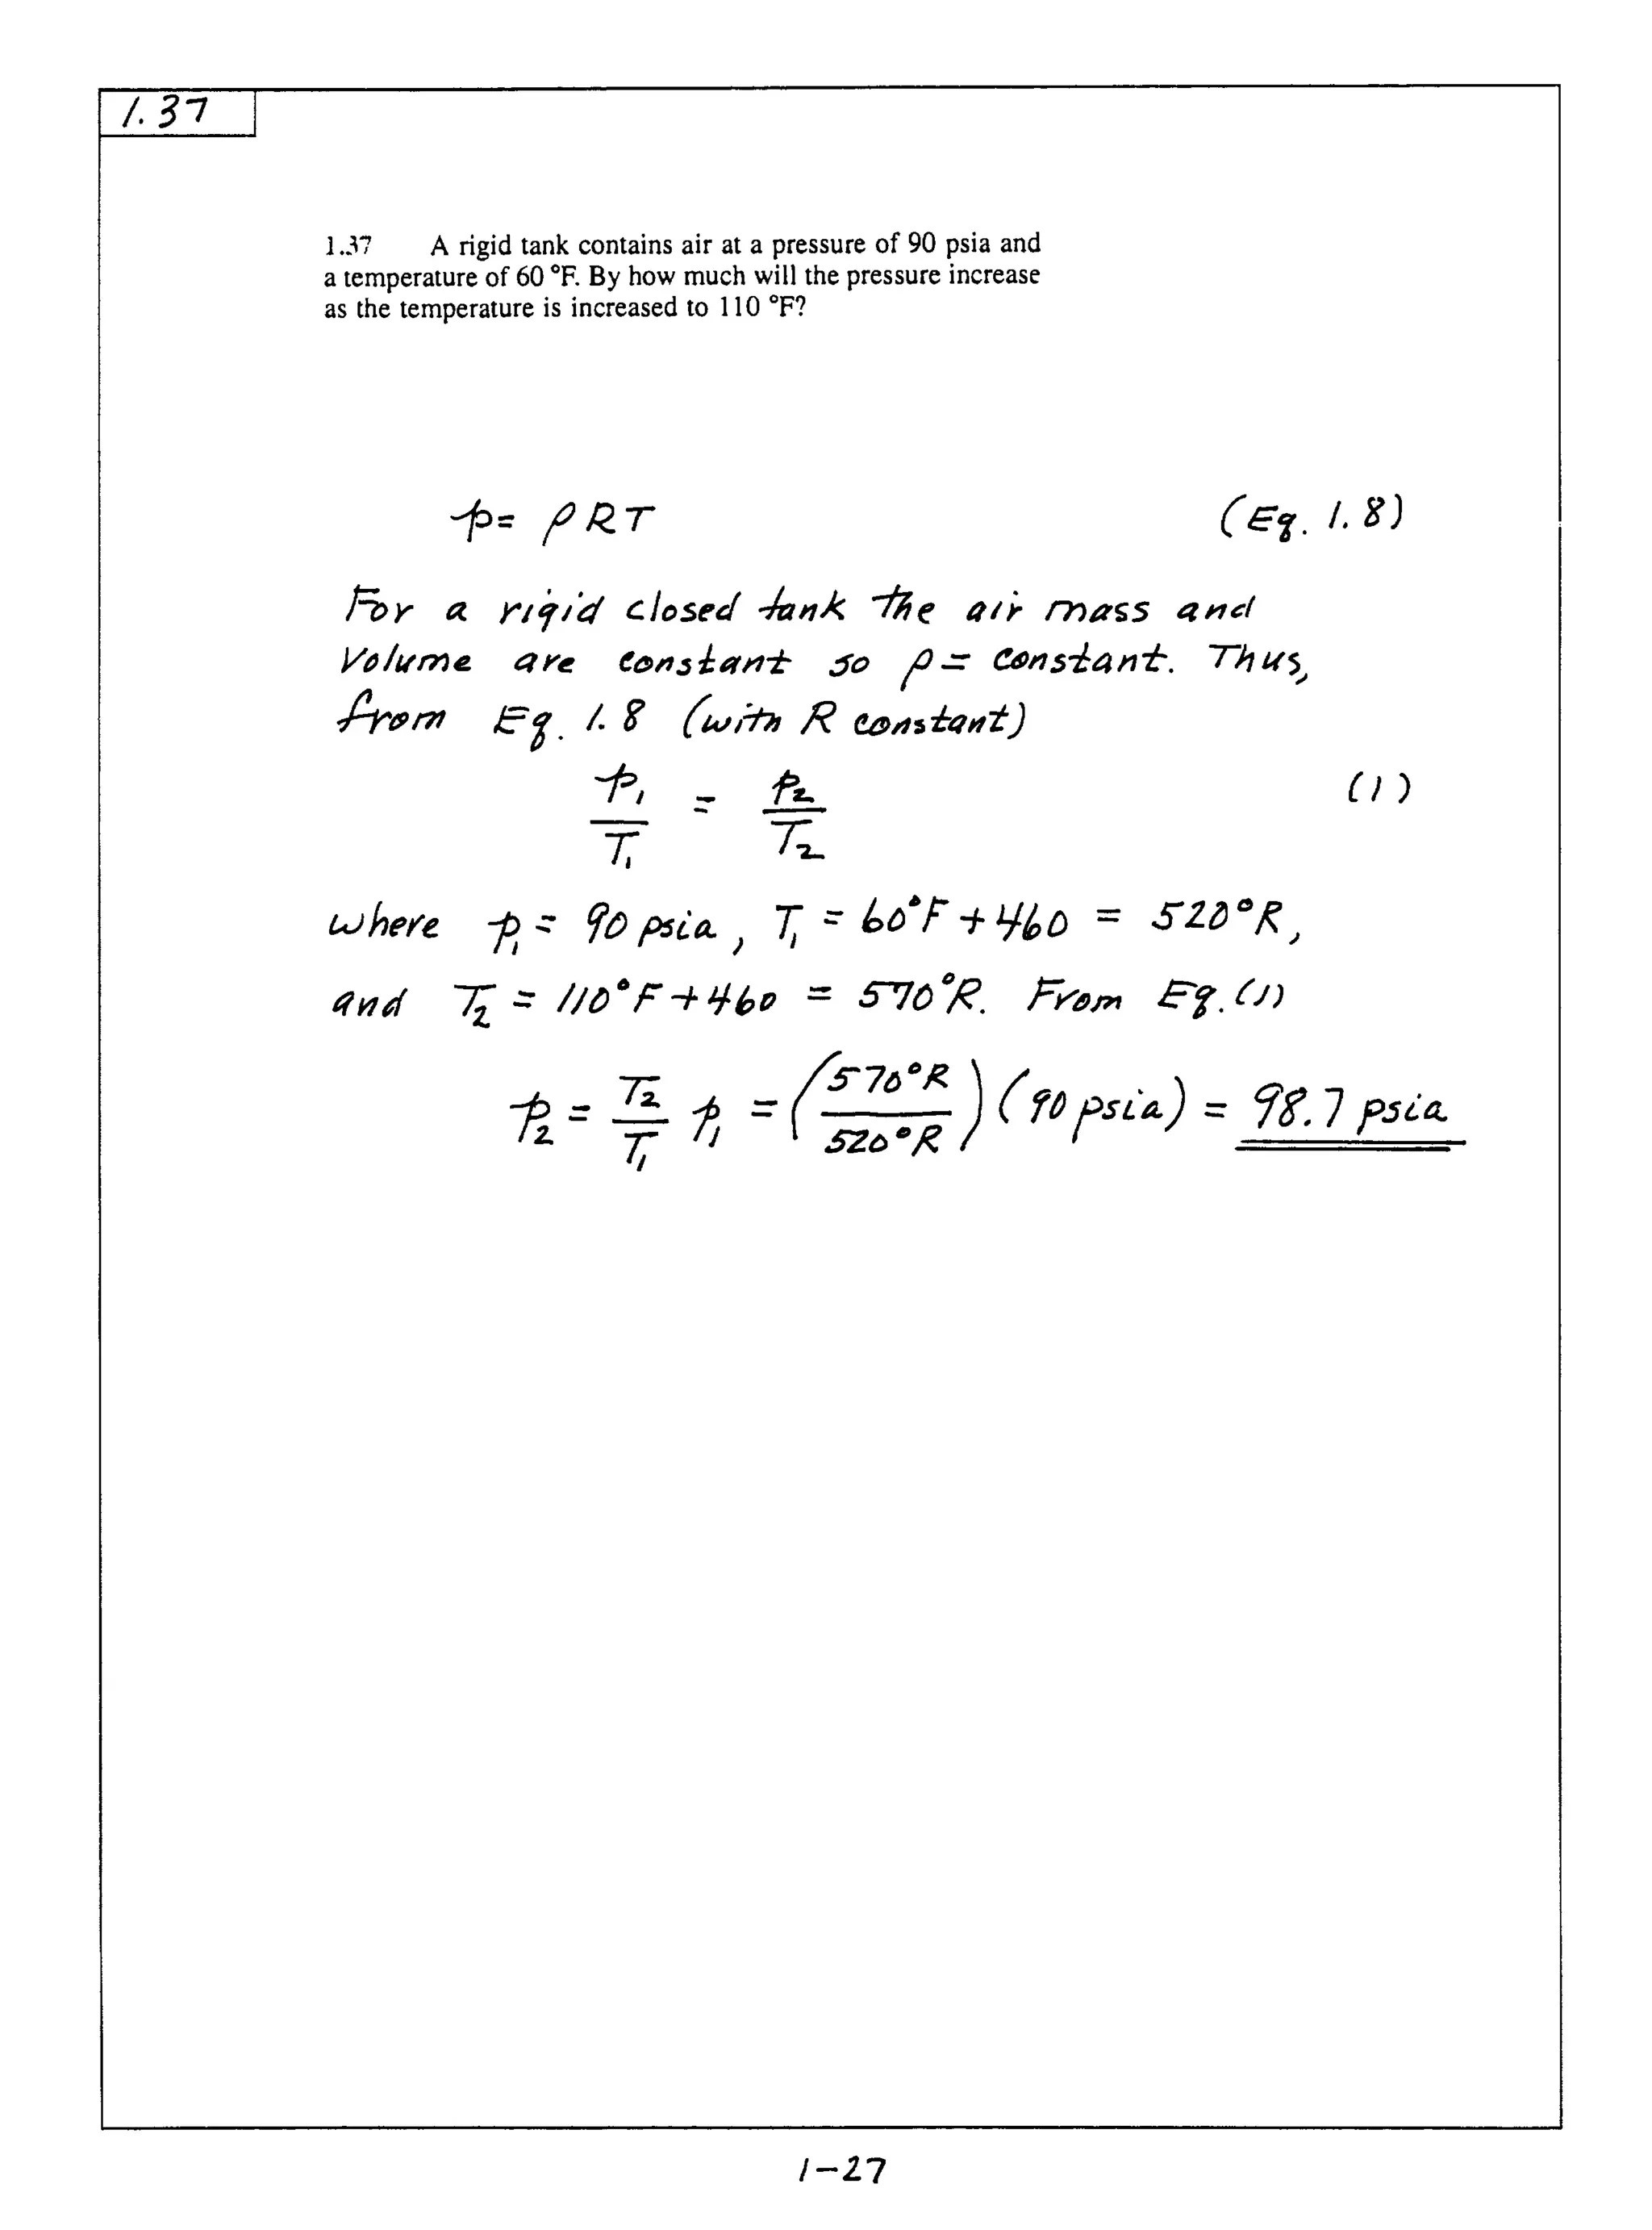 1.37
1.37 A rigid tank contains air at a pressure of 90 psia and
a temperature of 60 °F. By how much will the pressure increase
as the temperature is increased to 110 °F?
p = ρRT (Eq. 1.8)
For a rigid closed tank the air mass and
volume are constant so ρ = constant. Thus,
from Eq. 1.8 (with R constant)
p₁/T₁ = p₂/T₂ (1)
where p₁ = 90 psia, T₁ = 60°F + 460 = 520°R,
and T₂ = 110°F + 460 = 570°R. From Eq. (1)
p₂ = T₂/T₁ p₁ = (570°R/520°R) (90 psia) = 98.7 psia
1-27